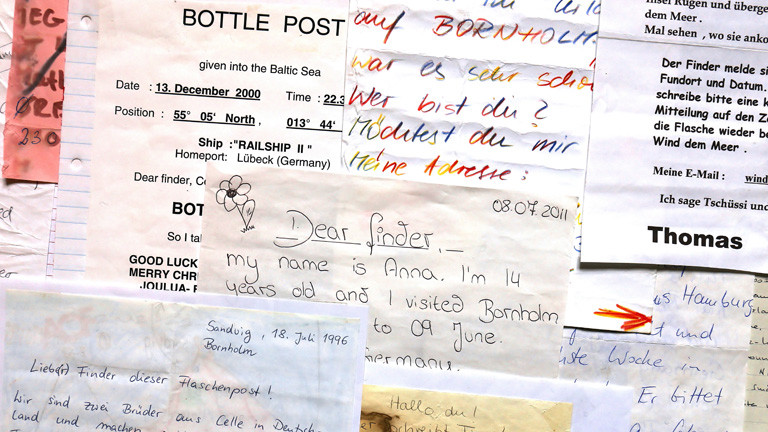 BOTTLE POST
given into the Baltic Sea
Date : 13. December 2000 Time : 22.3
Position : 55° 05' North, 013° 44'
Ship :"RAILSHIP II"
Homeport: Lübeck (Germany)
Dear finder, Co
BOT
So I ta
GOOD LUCK
MERRY CHR
JOULUA- F
230
auf BORNHOLM.
war es sehr schö
Wer bist du?
Möchtest du mir
Meine Adresse:
Insel Rügen und überge
dem Meer.
Mal sehen, wo sie anko
Der Finder melde si
Fundort und Datum.
schreibe bitte eine k
Mitteilung auf den Ze
die Flasche wieder be
Wind dem Meer.
Meine E-Mail : wind
Ich sage Tschüssi und
Thomas
08.07.2011
Dear finder,
my name is Anna. I'm 14
years old and I visited Bornholm
to 09 June.
Germany.
Sandvig, 18. Juli 1996
Bornholm
Lieb(r) Finder dieser Flaschenpost!
Wir sind zwei Brüder aus Celle in Deutsch
land und machen
Hallo du!
schreibt
us Hamburg
und
ste Woche in
Er bittet